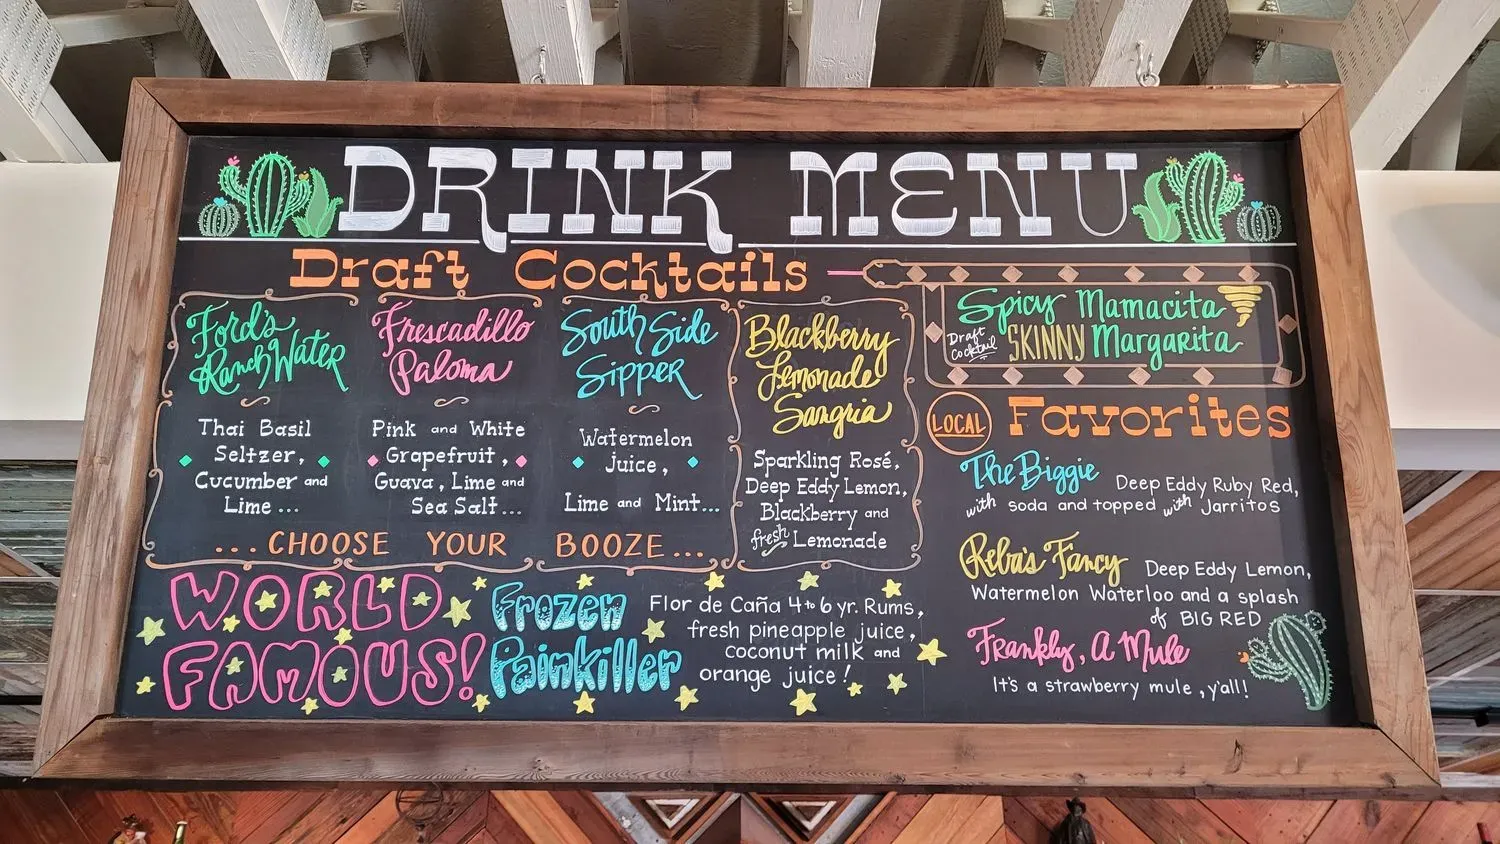 DRINK MENU
Draft Cocktails
Ford's
Ranch Water
Thai Basil
Seltzer,
Cucumber and
Lime...
Frescadillo
Paloma
Pink and White
Grapefruit,
Guava, Lime and
Sea Salt...
South Side
Sipper
Watermelon
Juice,
Lime and Mint...
...CHOOSE YOUR BOOZE...
Blackberry
Lemonade
Sangria
Sparkling Rosé,
Deep Eddy Lemon,
Blackberry and
fresh Lemonade
Spicy Mamacita
Draft Cocktail SKINNY Margarita
LOCAL Favorites
The Biggie Deep Eddy Ruby Red,
with soda and topped with Jarritos
Reba's Fancy Deep Eddy Lemon,
Watermelon Waterloo and a splash
of BIG RED
Frankly, A Mule
It's a strawberry mule, y'all!
WORLD
FAMOUS!
Frozen
Painkiller
Flor de Caña 4 to 6 yr. Rums,
fresh pineapple juice,
coconut milk and
orange juice!